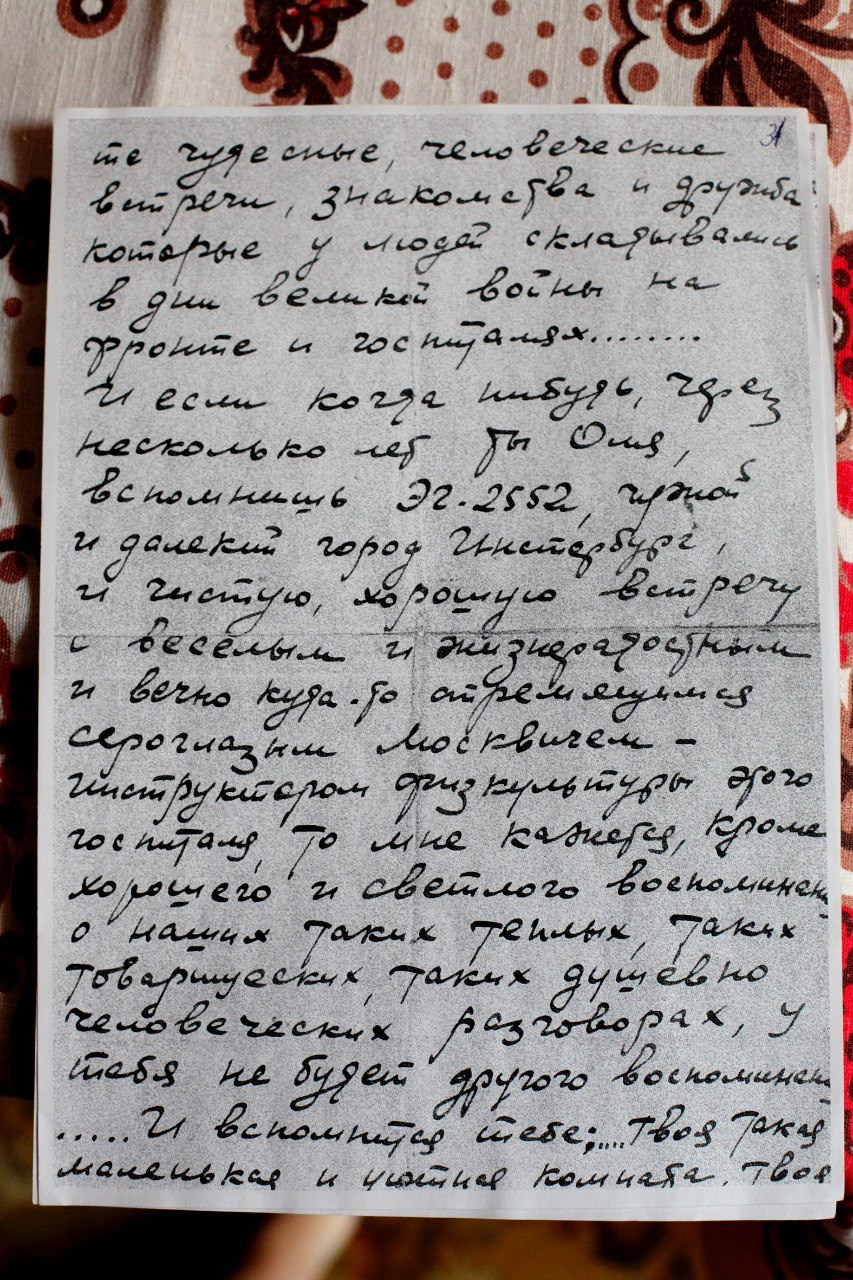 31
те чудесные, человеческие
встречи, знакомства и дружба
которые у людей складывались
в дни великой войны на
фронте и госпиталях........
И если когда нибудь, через
несколько лет ты Оля,
вспомнишь ЭГ-2552, чужой
и далекий город Инстербург,
и чистую, хорошую встречу
с веселым и жизнерадостным
и вечно куда-то стремящимся
сероглазым москвичем –
инструктором физкультуры этого
госпиталя, то мне кажется, кроме
хорошего и светлого воспоминани
о наших таких теплых, таких
товарищеских, таких душевно
человеческих разговорах, у
тебя не будет другого воспоминани
.....И вспомнится тебе;....твоя такая
маленькая и уютная комната. твоя